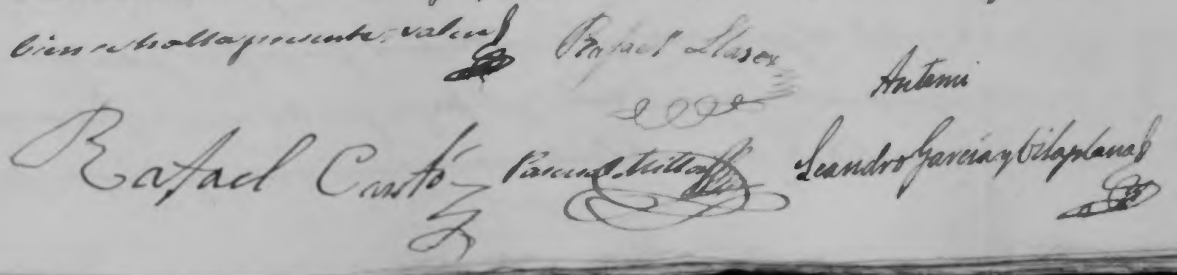 bien se halla presente. valen
Rafael Llacer
Antemi
Rafael Cantó
Pascual
Leandro Garcia y Vilaplana